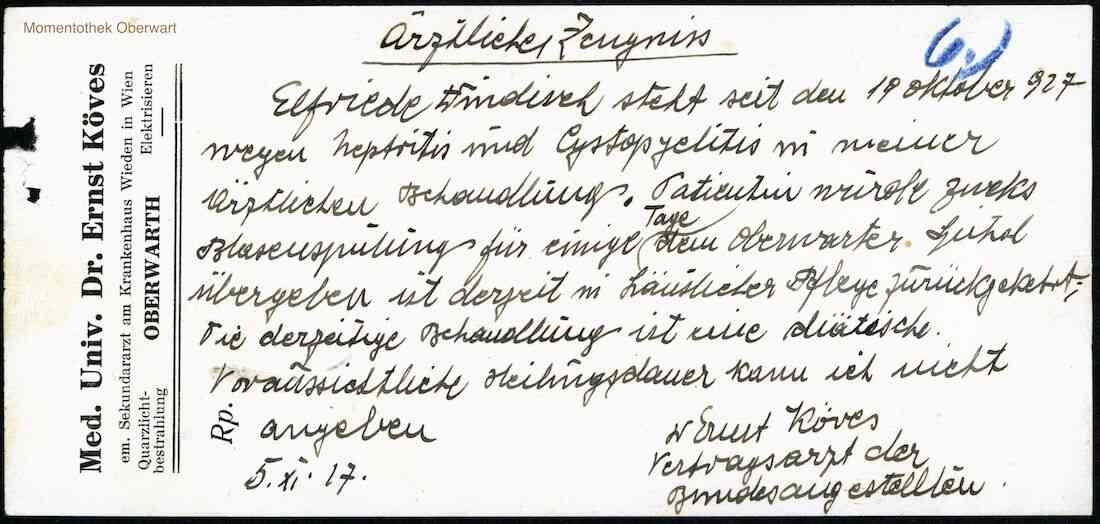 Momentothek Oberwart
Med. Univ. Dr. Ernst Köves
em. Sekundararzt am Krankenhaus Wieden in Wien
Quarzlicht-
bestrahlung
OBERWARTH
Elektrisieren
Rp.
6.)
Ärztliches Zeugniss
Elfriede Windisch steht seit den 19 Oktober 927
wegen Neptritis und Cystopyelitis in meiner
Ärztlichen Behandlung. Patientin wurde zweks
Blasenspülung für einige Tage dem Oberwarter Spital
übergeben ist derzeit in häuslicher Pflege zurückgekehrt.
Die derzeitige Behandlung ist eine diätische.
Voraussichtliche Heilungsdauer kann ich nicht
angeben
5. XI. 17.
Dr Ernst Köves
Vertragsarzt der
Bundesangestellten.